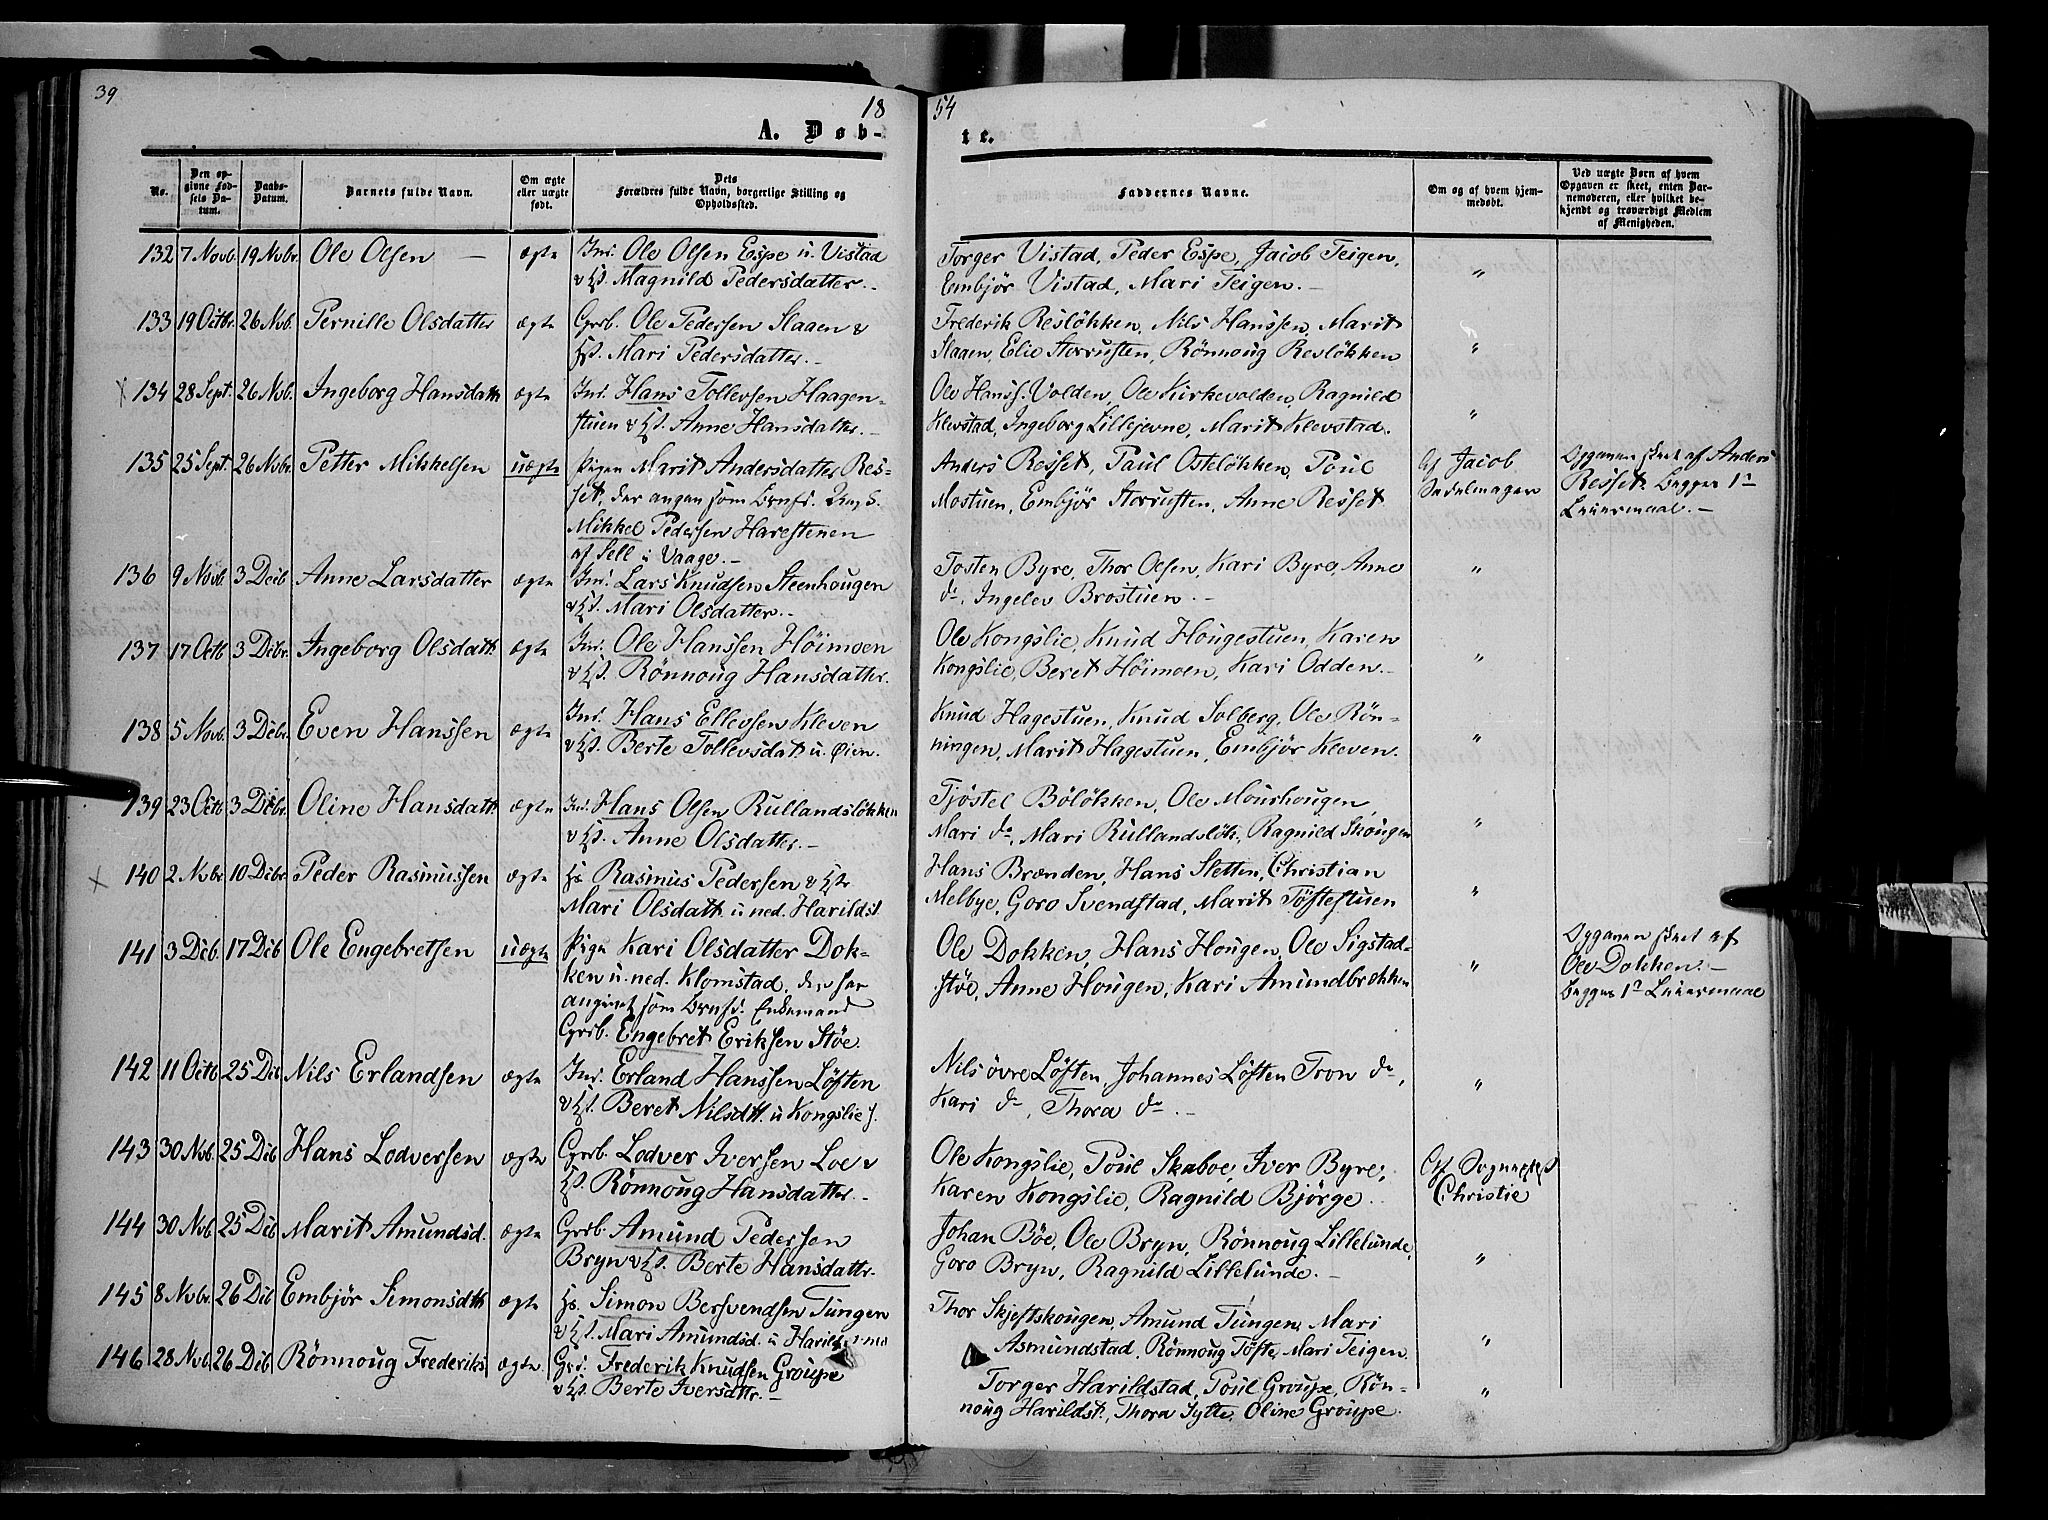 39
18
54
A. Døb-
te.
No.
Den op-
givne Fød-
sels Da-
tum.
Daabs-
Datum.
Barnets fulde Navn.
Om ægte
eller uægte
født.
Dets
Forældres fulde Navn, borgerlige Stilling og
Opholdssted.
Faddernes Navne.
Om og af hvem hjem-
medøbt.
Ved uægte Børn af hvem
Opgaven er skeet, enten Bar-
nemoderen, eller hvilket be-
kjendt og troværdigt Medlem
af Menigheden.
132 7 Novb. 19 Novbr. Ole Olsen — ægte Ind. Ole Olsen Espe u. Vistad
& Hst. Magnild Pedersdatter.–
Torger Vistad, Peder Espe, Jacob Teigen,
Embjör Vistad, Mari Teigen.– "
133 19 Octb. 26 Nvb. Pernille Olsdatter ægte Grb. Ole Pedersen Slaaen &
Hst. Mari Pedersdatter.–
Frederik Reslökken, Nils Hanssen, Marit
Slaaen, Elie Storrusten, Rönnoug Reslökken "
134 28 Sept. 26 Nvb. Ingeborg Hansdatt. ægte Ind. Hans Tollevsen Haagen-
stuen & Hst. Anne Hansdatter.–
Ole Hanss. Volden, Ole Kirkevolden, Ragnild
Klevstad, Ingeborg Lillejevne, Marit Klevstad. "
135 25 Sept. 26 Nvbr. Petter Mikkelsen uægte Pigen Marit Andersdatter Res-
set, der angav som Brnfd. Ung K.
Mikkel Pedersen Harestenen
af Sell i Vaage.–
Anders Resset, Paul Ostelökken, Poul
Mostuen, Embjör Storrusten, Anne Resset
Af Jacob
Sadelmager
Opgaven skeet af Anders
Resset. Begges 1ste
Leiermaal.–
136 9 Novb. 3 Decb. Anne Larsdatter ægte Ind. Lars Knudsen Steenhougen
& Hst. Mari Olsdatter.–
Tosten Byre, Thor Olsen, Kari Byre, Anne
do, Ingelev Brostuen.– "
137 17 Octb. 3 Dcbr. Ingeborg Olsdatt. ægte Ind. Ole Hanssen Höimoen
& Hst. Rönnoug Hansdatter.
Ole Kongslie, Knud Hougestuen, Karen
Kongslie, Beret Höimoen, Kari Odden.– "
138 5 Novb. 3 Decbr. Even Hanssen ægte Ind. Hans Ellevsen Kleven
& Hst. Berte Tollevsdat. u. Öien.
Knud Hagestuen, Knud Solberg, Ole Rön-
ningen, Marit Hagestuen, Embjör Kleven. "
139 23 Octb. 3 Decbr. Oline Hansdatt. ægte Ind. Hans Olsen Rullandslökken
& Hst. Anne Olsdatter.–
Tjöstel Bölökken, Ole Mourhougen,
Mari do, Mari Rullandslök., Ragnild Skougen "
140 2 Nvbr. 10 Dcbr. Peder Rasmussen ægte Hs. Rasmus Pedersen & Hstr
Mari Olsdatt. u. ned. Harildst.
Hans Brænden, Hans Sletten, Christian
Melbye, Goro Svendstad, Marit Töftestuen "
141 3 Dcb. 17 Dcb. Ole Engebretsen uægte Pige Kari Olsdatter Dok-
ken u. ned. Klomstad, der har
angivet som Brnfd. Enkemand
Grb. Engebret Eriksen Stöe.
Ole Dokken, Hans Hougen, Ole Sigstad-
stöe, Anne Hougen, Kari Amundbrokken "
Opgaven skeet af
Ole Dokken.–
Begges 1ste Leiermaal
142 11 Octb. 25 Dcb. Nils Erlandsen ægte Ind. Erland Hanssen Löften
& Hst. Beret Nilsdtt. u. Kongslie.
Nils övre Löften, Johannes Löften, Tron do,
Kari do, Thora do.– "
143 30 Nvb. 25 Dcb. Hans Lodversen ægte Grb. Lodver Iversen Loe &
Hst. Rönnoug Hansdatter.–
Ole Kongslie, Poul Skaboe, Iver Byre,
Karen Kongslie, Ragnild Björge.
Af Sognepr.
Christie
144 30 Nvb. 25 Dcb. Marit Amundsd. ægte Grb. Amund Pedersen
Bryn & Hst. Berte Hansdattr.
Johan Böe, Ole Bryn, Rönnoug Lillelunde,
Goro Bryn, Ragnild Lillelunde.– "
145 8 Nvbr. 26 Dcb. Embjör Simonsdtt. ægte Hs. Simon Bersvendsen Tungen
& Hst. Mari Amundsd. u. Harildst. ned.
Thor Skjeftskougen, Amund Tungen, Mari
Asmundstad, Rönnoug Töfte, Mari Teigen. "
146 28 Nvb. 26 Dcb. Rönnoug Frederiks. ægte Grd. Frederik Knudsen Groupe
& Hst. Berte Iversdttr.–
Torger Harildstad, Poul Groupe, Rön-
noug Harildst., Thora Sylte, Oline Groupe. "